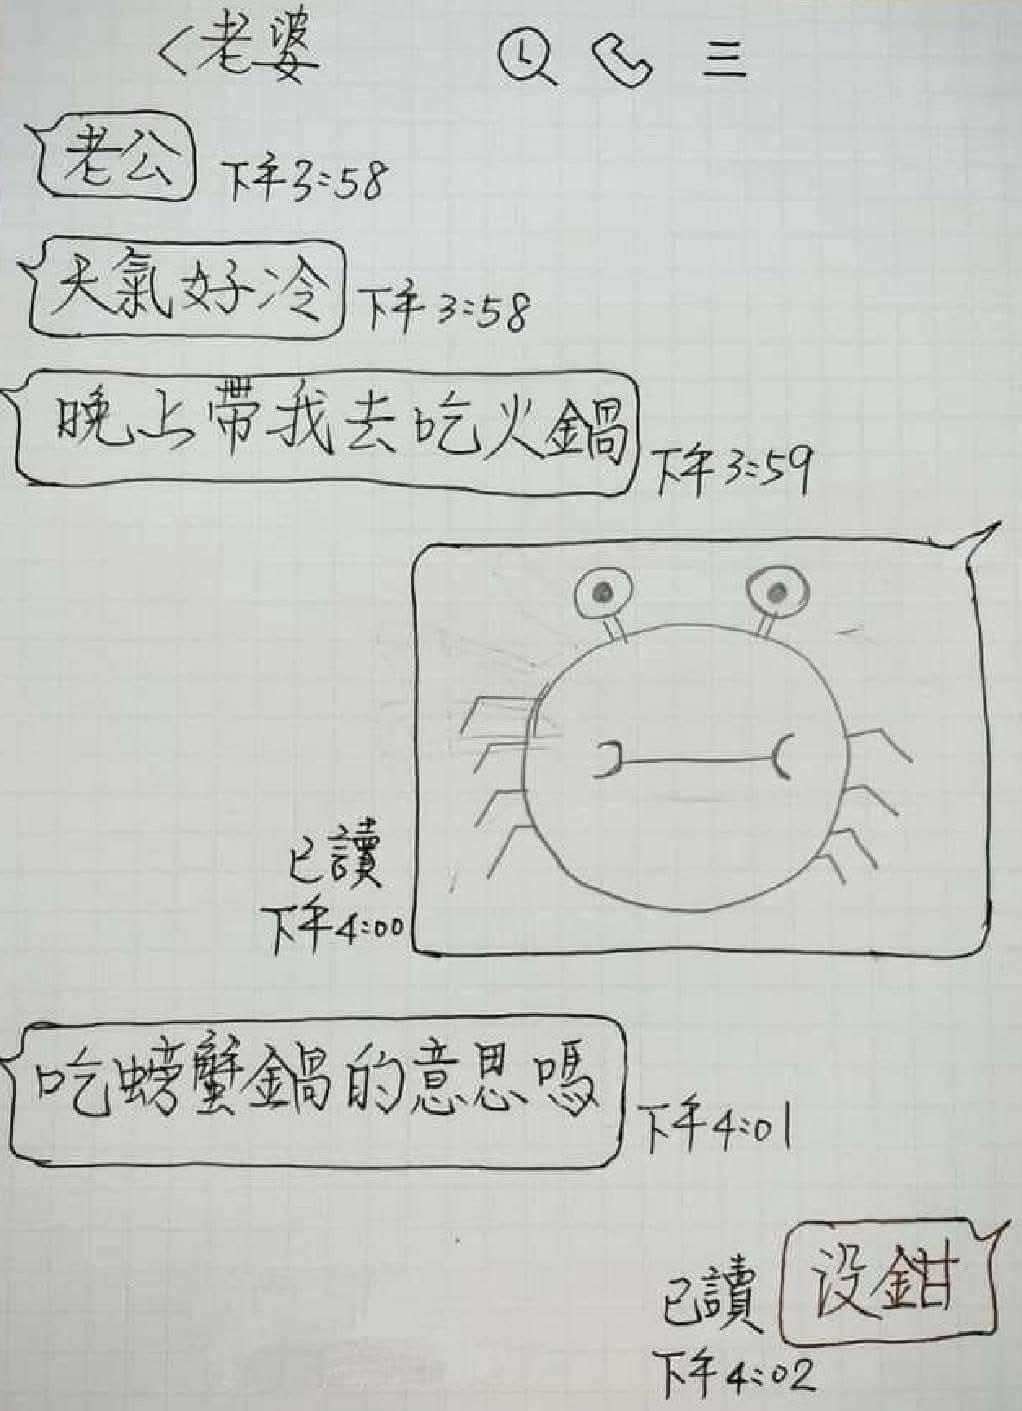 <老婆
老公
下午3:58
天氣好冷
下午3:58
晚上帶我去吃火鍋
下午3:59
已讀
下午4:00
吃螃蟹鍋的意思嗎
下午4:01
已讀
没鉗
下午4:02